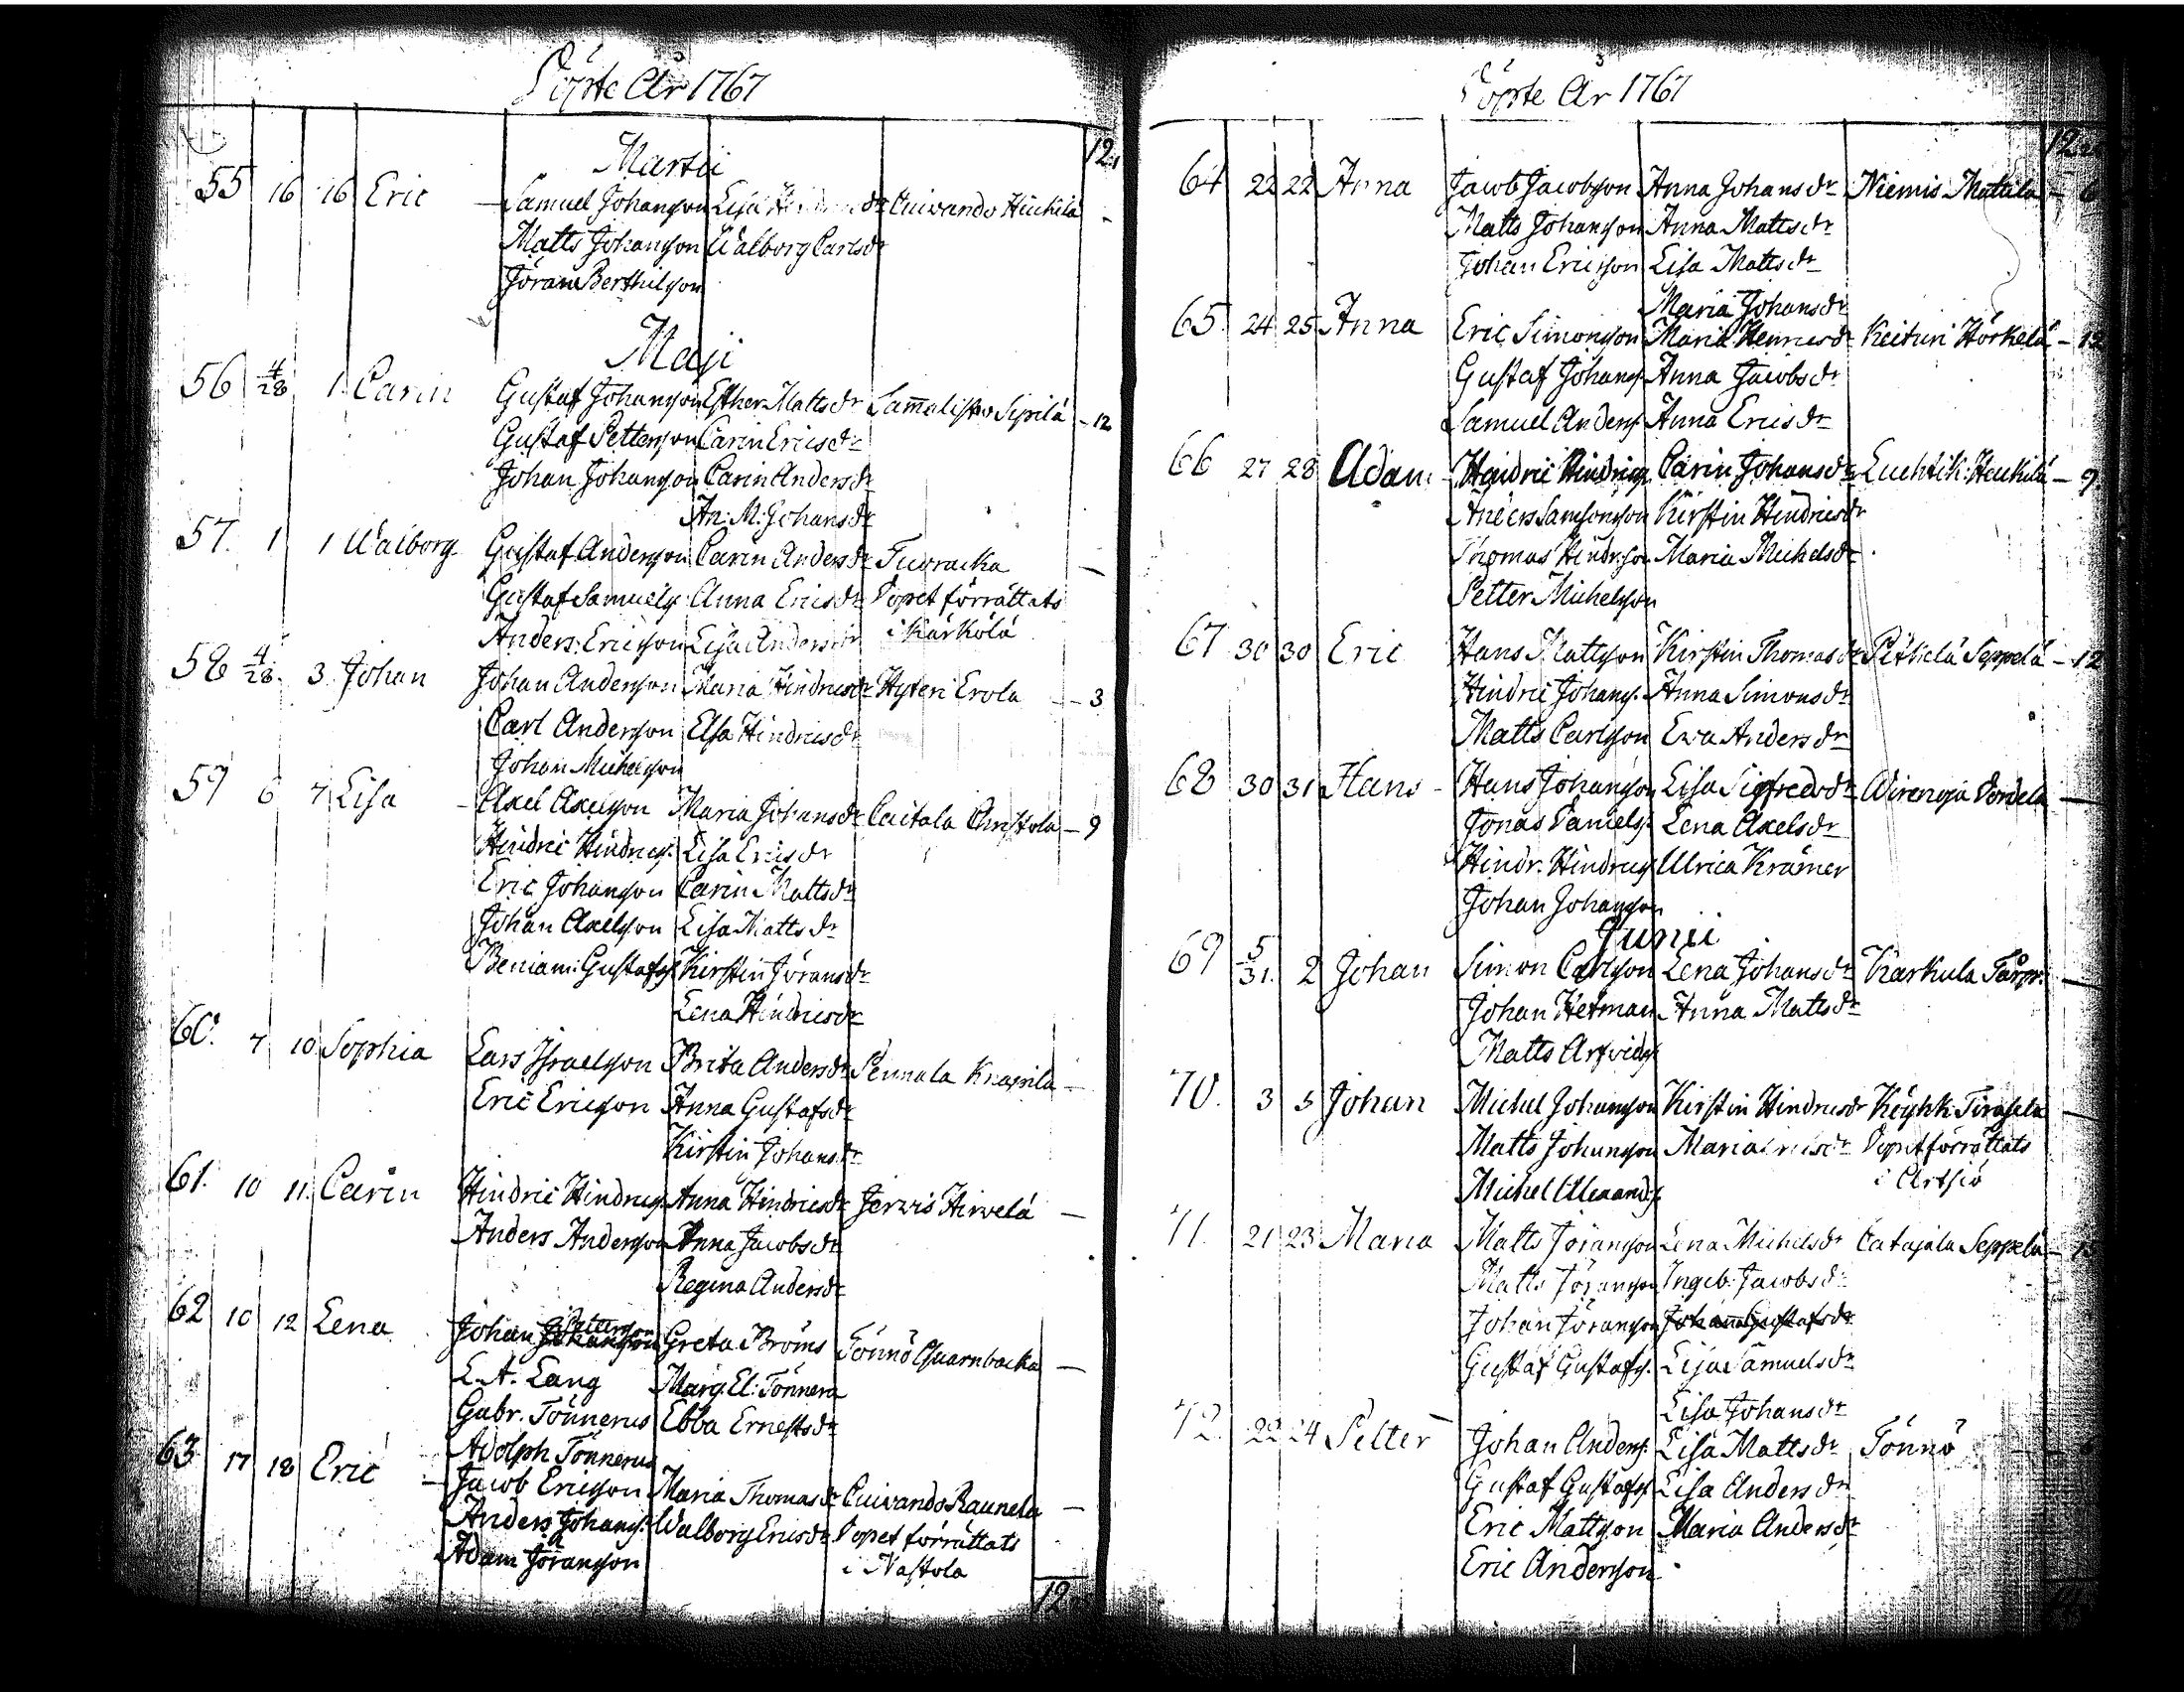 Döpte År 1767
12
Martii
55 16 16 Eric Samuel Johanson Lisa dr Cuivando Heickilä -
Matts Johanson Walborg Carlsdr
Jöran Berthilson
Maji
56 4/28 1 Carin Gustaf Johanson Esther Mattsdr Sam̄alisto Sipilä - 12
Gustaf Petterson Carin Ericsdr
Johan Johanson Carin Andersdr
An: M: Johansdr
57. 1 1 Walborg Gustaf Anderson Carin Andersdr Tuoracka —
Gustaf Samuels. Anna Ericsdr Dopet förrättats
Anders Ericson Lisa Andersdr i Kärkölä
58 4/28. 3 Johan Johan Anderson Maria Hindricsdr Hyteri Erola - 3
Carl Anderson Elsa Hindricsdr
Johan Michelson
59 6 7 Lisa - Axel Axelson Maria Johansdr Caitala Anstola - 9
Hindric Hindrics. Lisa Ericsdr
Eric Johanson Carin Mattsdr
Johan Axelson Lisa Mattsdr
Beniam: Gustafs. Kirstin Jöransdr
Lena Hindricsdr
60. 7 10 Sophia Lars Israelson Brita Andersdr Pennala Knapila —
Eric Ericson Anna Gustafsdr
Kirstin Johansdr
61. 10 11 Carin Hindric Hindrics. Anna Hindricsdr Jerwis Hirvelä —
Anders Anderson Anna Jacobsdr
Regina Andersdr
62 10 12 Lena Johan Johanson Petterson Greta Bröms Tönnö Quarnbacka —
L. A. Lang Marg. El: Tönnera
Gabr. Tönnerus Ebba Ernestsdr
Adolph Tönnerus
63 17 18 Eric - Jacob Ericson Maria Thomasdr Cuivando Raunela —
Anders Johans. Walborg Ericsdr Dopet förrättats
Adam Jöranson i Nastola
12
Döpte År 1767
12
64 22 22 Anna Jacob Jacobson Anna Johansdr Niemis Mattila - 6
Matts Johanson Anna Mattsdr
Johan Ericson Lisa Mattsdr
Maria Johansdr
65. 24 25 Anna Eric Simonson Maria Henricsdr Keituri Hörkelä - 12
Gustaf Johans. Anna Jacobsdr
Samuel Anders. Anna Ericsdr
66 27 28 Adam - Hendric Hindrics. Carin Johansdr Luhtik: Heickilä - 9
Anders Samsonson Kirstin Hindricsdr
Thomas Hindrson Maria Michelsdr
Petter Michelson
67 30 30 Eric Hans Mattson Kirstin Thomasdr Pitkelä Seppelä - 12
Hindric Johans. Anna Simonsdr
Matts Carlson Ewa Andersdr
68 30 31 Hans - Hans Johanson Lisa Sigfredsdr Wirenoja —
Jonas Daniels. Lena Axelsdr
Hindr. Hindrics. Ulrica Krämer
Johan Johanson
Junii
69 5/31. 2 Johan Simon Carlson Lena Johansdr Karkula Tårpr. —
Johan Hetman Anna Mattsdr
Matts Arfvids.
70. 3 5 Johan Michel Johanson Kirstin Hindricsdr Köykk: —
Matts Johanson Maria Dopet förrättats
Michel Alexands. i Artsiö
71. 21 23 Maria Matts Jöranson Lena Michelsdr Catajala Seppelä -
Matts Jöranson Ingeb: Jacobsdr
Johan Jöranson Johanna Gustafsdr
Gustaf Gustafs. Lisa Samuelsdr
Lisa Johansdr
72. 22 24 Petter Johan Anders. Lisa Mattsdr Tönnö - 6
Gustaf Gustafs. Lisa Andersdr
Eric Mattson Maria Andersdr
Eric Anderson